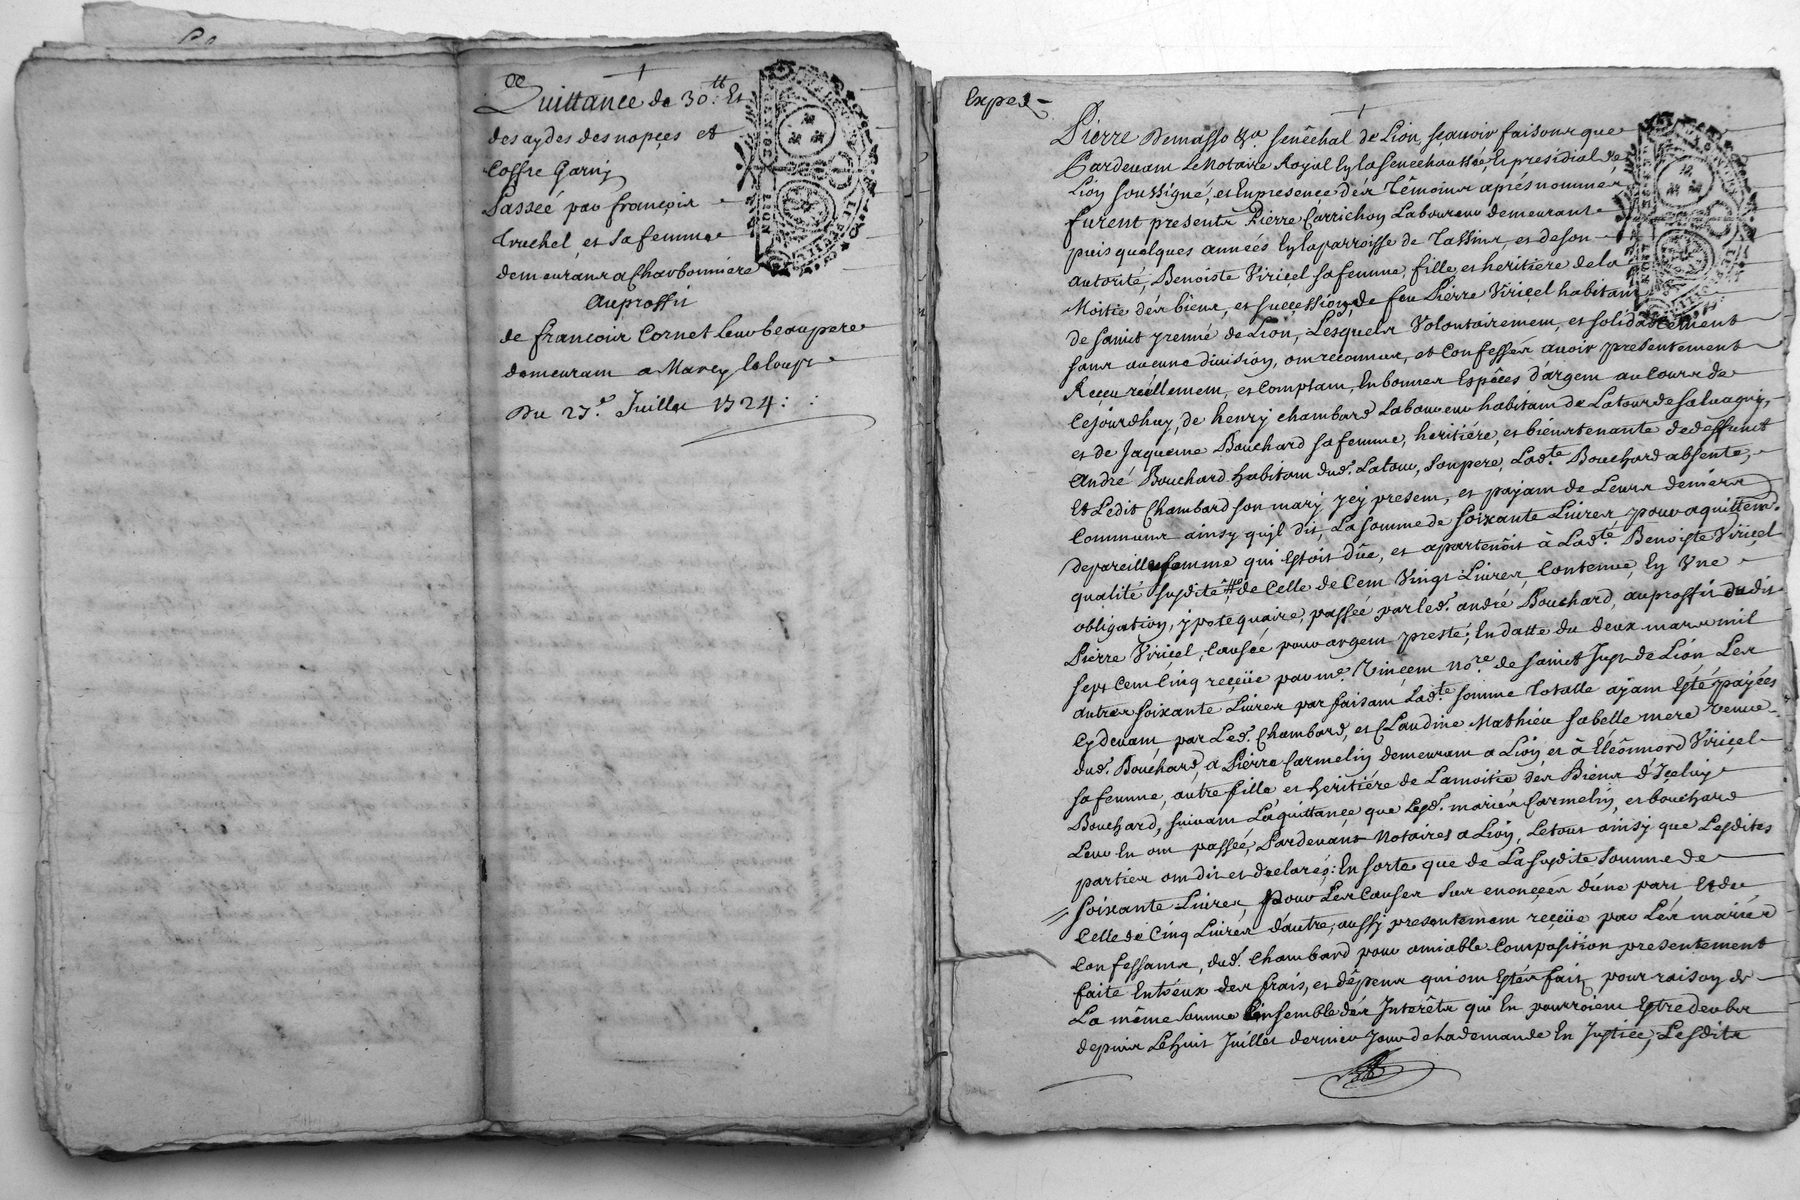 Quittance de 30.tt Et
des aydes des nopçes et
Coffre Garnj
Passée par françois
Truchel et sa femme
demeurans a Charbonniere
Auproffit
de francois Cornet leur beaupere
demeurant a Marcy leloup
Du 27.e Juillet 1724:
Exped
Pierre Demasso &a. senêchal de Lion, sçauoir faisons que
Pardeuant LeNotaire Royal En la senechaussée, Et presidial de
Lion soussigné, et En presence des Têmoins aprés nommés
furent presents Pierre Carrichon Laboureur demeurant
puis quelques années En la parroisse de Tassins, et de son
autorité, Benoiste Viriçel sa femme, fille et heritiere de la
Moitié dés biens, et suççession de feu Pierre Viriçel habitant
de sainct yrenné de Lion, Lesquels Volontairement, et solidairement
sans aucune division, ont reconnu, et Confessés auoir presentement
Reçeu réellement, et Comptant, En bonnes Espêces d'argent au Cours de
Cejourdhuy, de henry chambard Laboureur habitant de La tour de saluagny,
et de Jaqueme Bouchard sa femme, heritiére, et bienstenante de deffunct
André Bouchard habitant dud.t Latour, son pere, Lad.te Bouchard absente,
Et Ledit Chambard son mary jcy present, et payant de Leurs deniers
Communs ainsy qu'jl dit, La somme de soixante Liures, pour aquittem.t
de pareille somme qui Estoit düe, et apartenoit à Lad.te Benoiste Viriçel
qualité susdite, de Celle de Cent Vingt Liures, Contenue, En Vne
obligation, ypotequaire, passée par led.t andré Bouchard, auproffit dudit
Pierre Viriçel, Causée pour argent presté; En datte du deux mars mil
sept Cent Cinq reçeüe par me. Vincent no.re de sainct Just de Lion Les
autres soixante Liures parfaisant Lad.te somme Totalle ayant Esté payées
Cy deuant, par Led.t Chambard, et Claudine Mathieu sa belle mere veuue
dud.t Bouchard, a Pierre Carmelin demeurant a Lion et à Eleônnord Viriçel
sa femme, autre fille et heritiére de La moitié dés Biens d'Içeluy
Bouchard, suiuant La quittançe que Lesd.t mariés Carmelin, et bouchard
Leur En ont passée, Pardeuant Notaires a Lion, Le tout ainsy que Lesdites
parties ont dit et declaré: En sorte que de La susdite somme de
soixante Liures, Pour Les Causes sus enonçées d'une part, Et de
Celle de Cinq Liures d'autre, aussy presentement reçeüe par Lés mariés
Confessants, dud.t Chambard pour amiable Composition presentement
faite Entreux des frais, et dêpens qui ont Estés faits pour raison de
La même somme Ensemble dés Interêts qui En pourroient Estre deubs
depuis Le huit Juillet dernier Jour de la demande En Justiçe, Lesdits